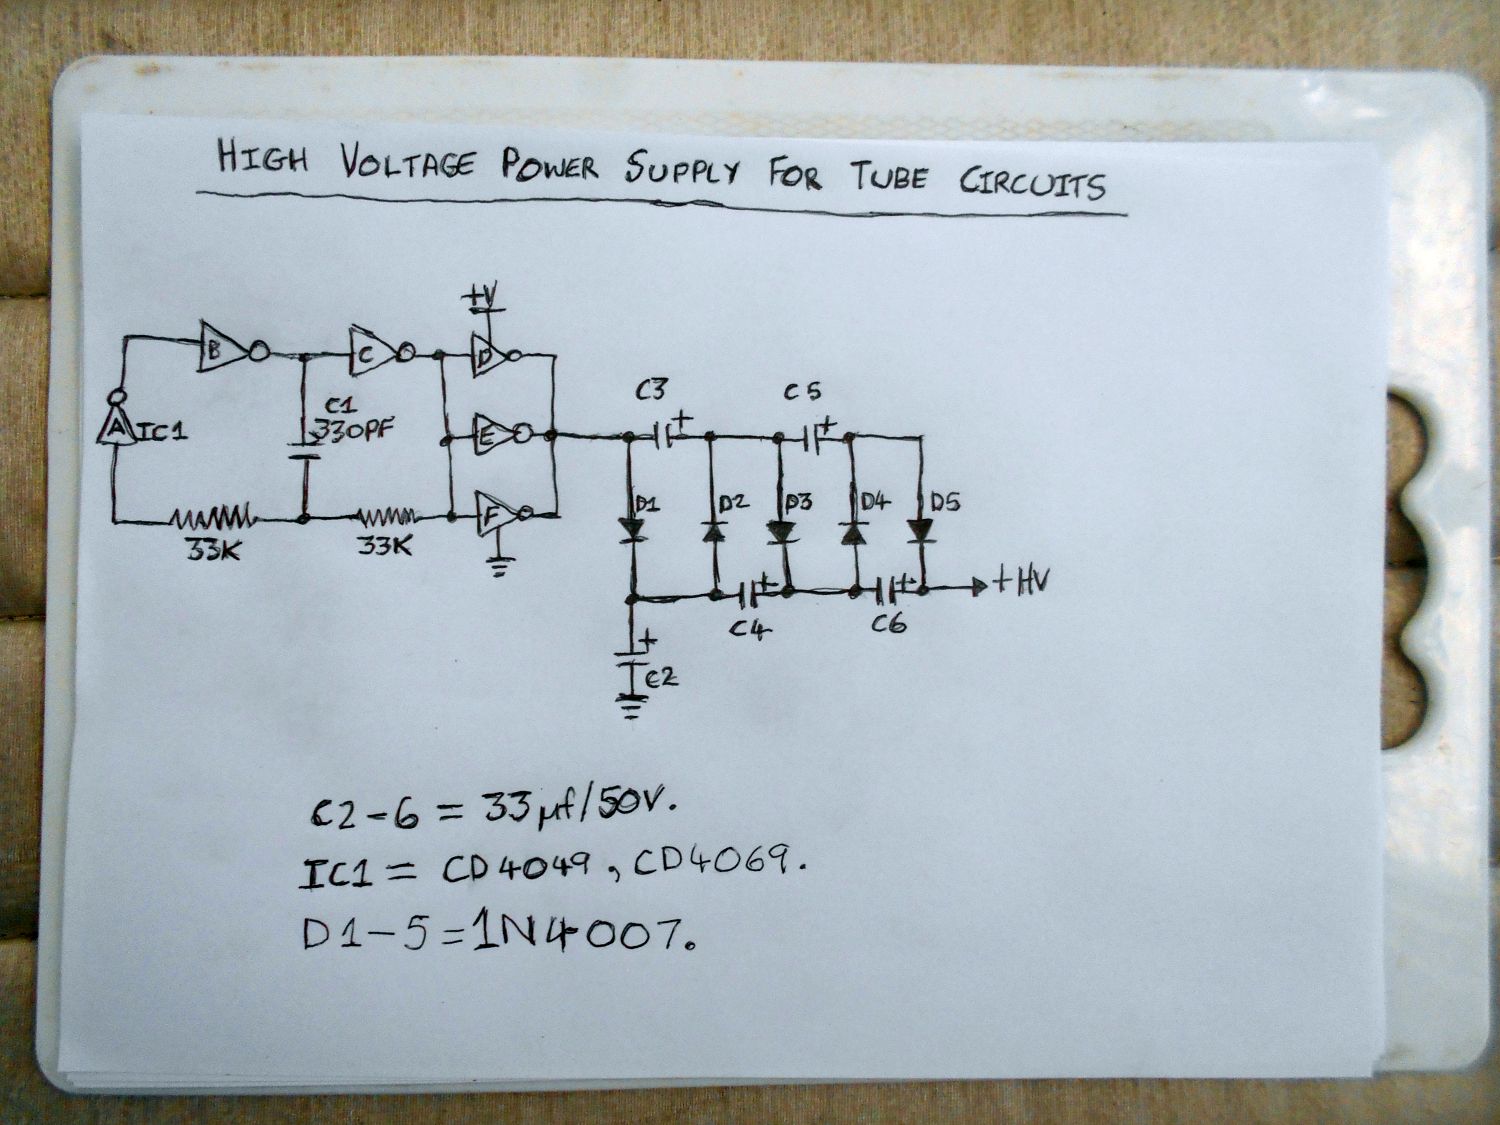 HIGH VOLTAGE POWER SUPPLY FOR TUBE CIRCUITS
+V
B
C
D
C3
+
C5
+
A
IC1
C1
330PF
E
D1
D2
D3
D4
D5
F
33K
33K
+
+
+HV
C4
C6
+
C2
C2-6 = 33µf/50V.
IC1 = CD4049, CD4069.
D1-5=1N4007.